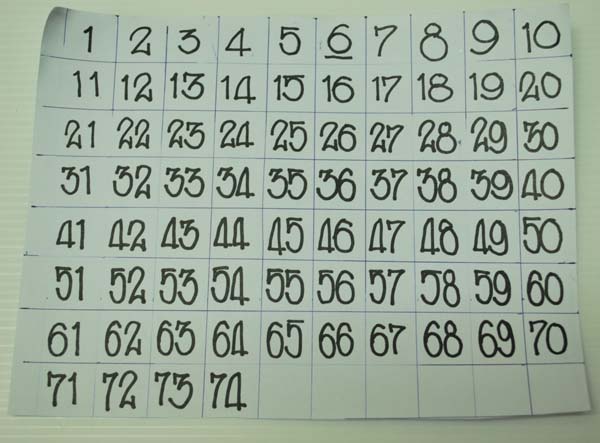 1 2 3 4 5 6 7 8 9 10
11 12 13 14 15 16 17 18 19 20
21 22 23 24 25 26 27 28 29 30
31 32 33 34 35 36 37 38 39 40
41 42 43 44 45 46 47 48 49 50
51 52 53 54 55 56 57 58 59 60
61 62 63 64 65 66 67 68 69 70
71 72 73 74